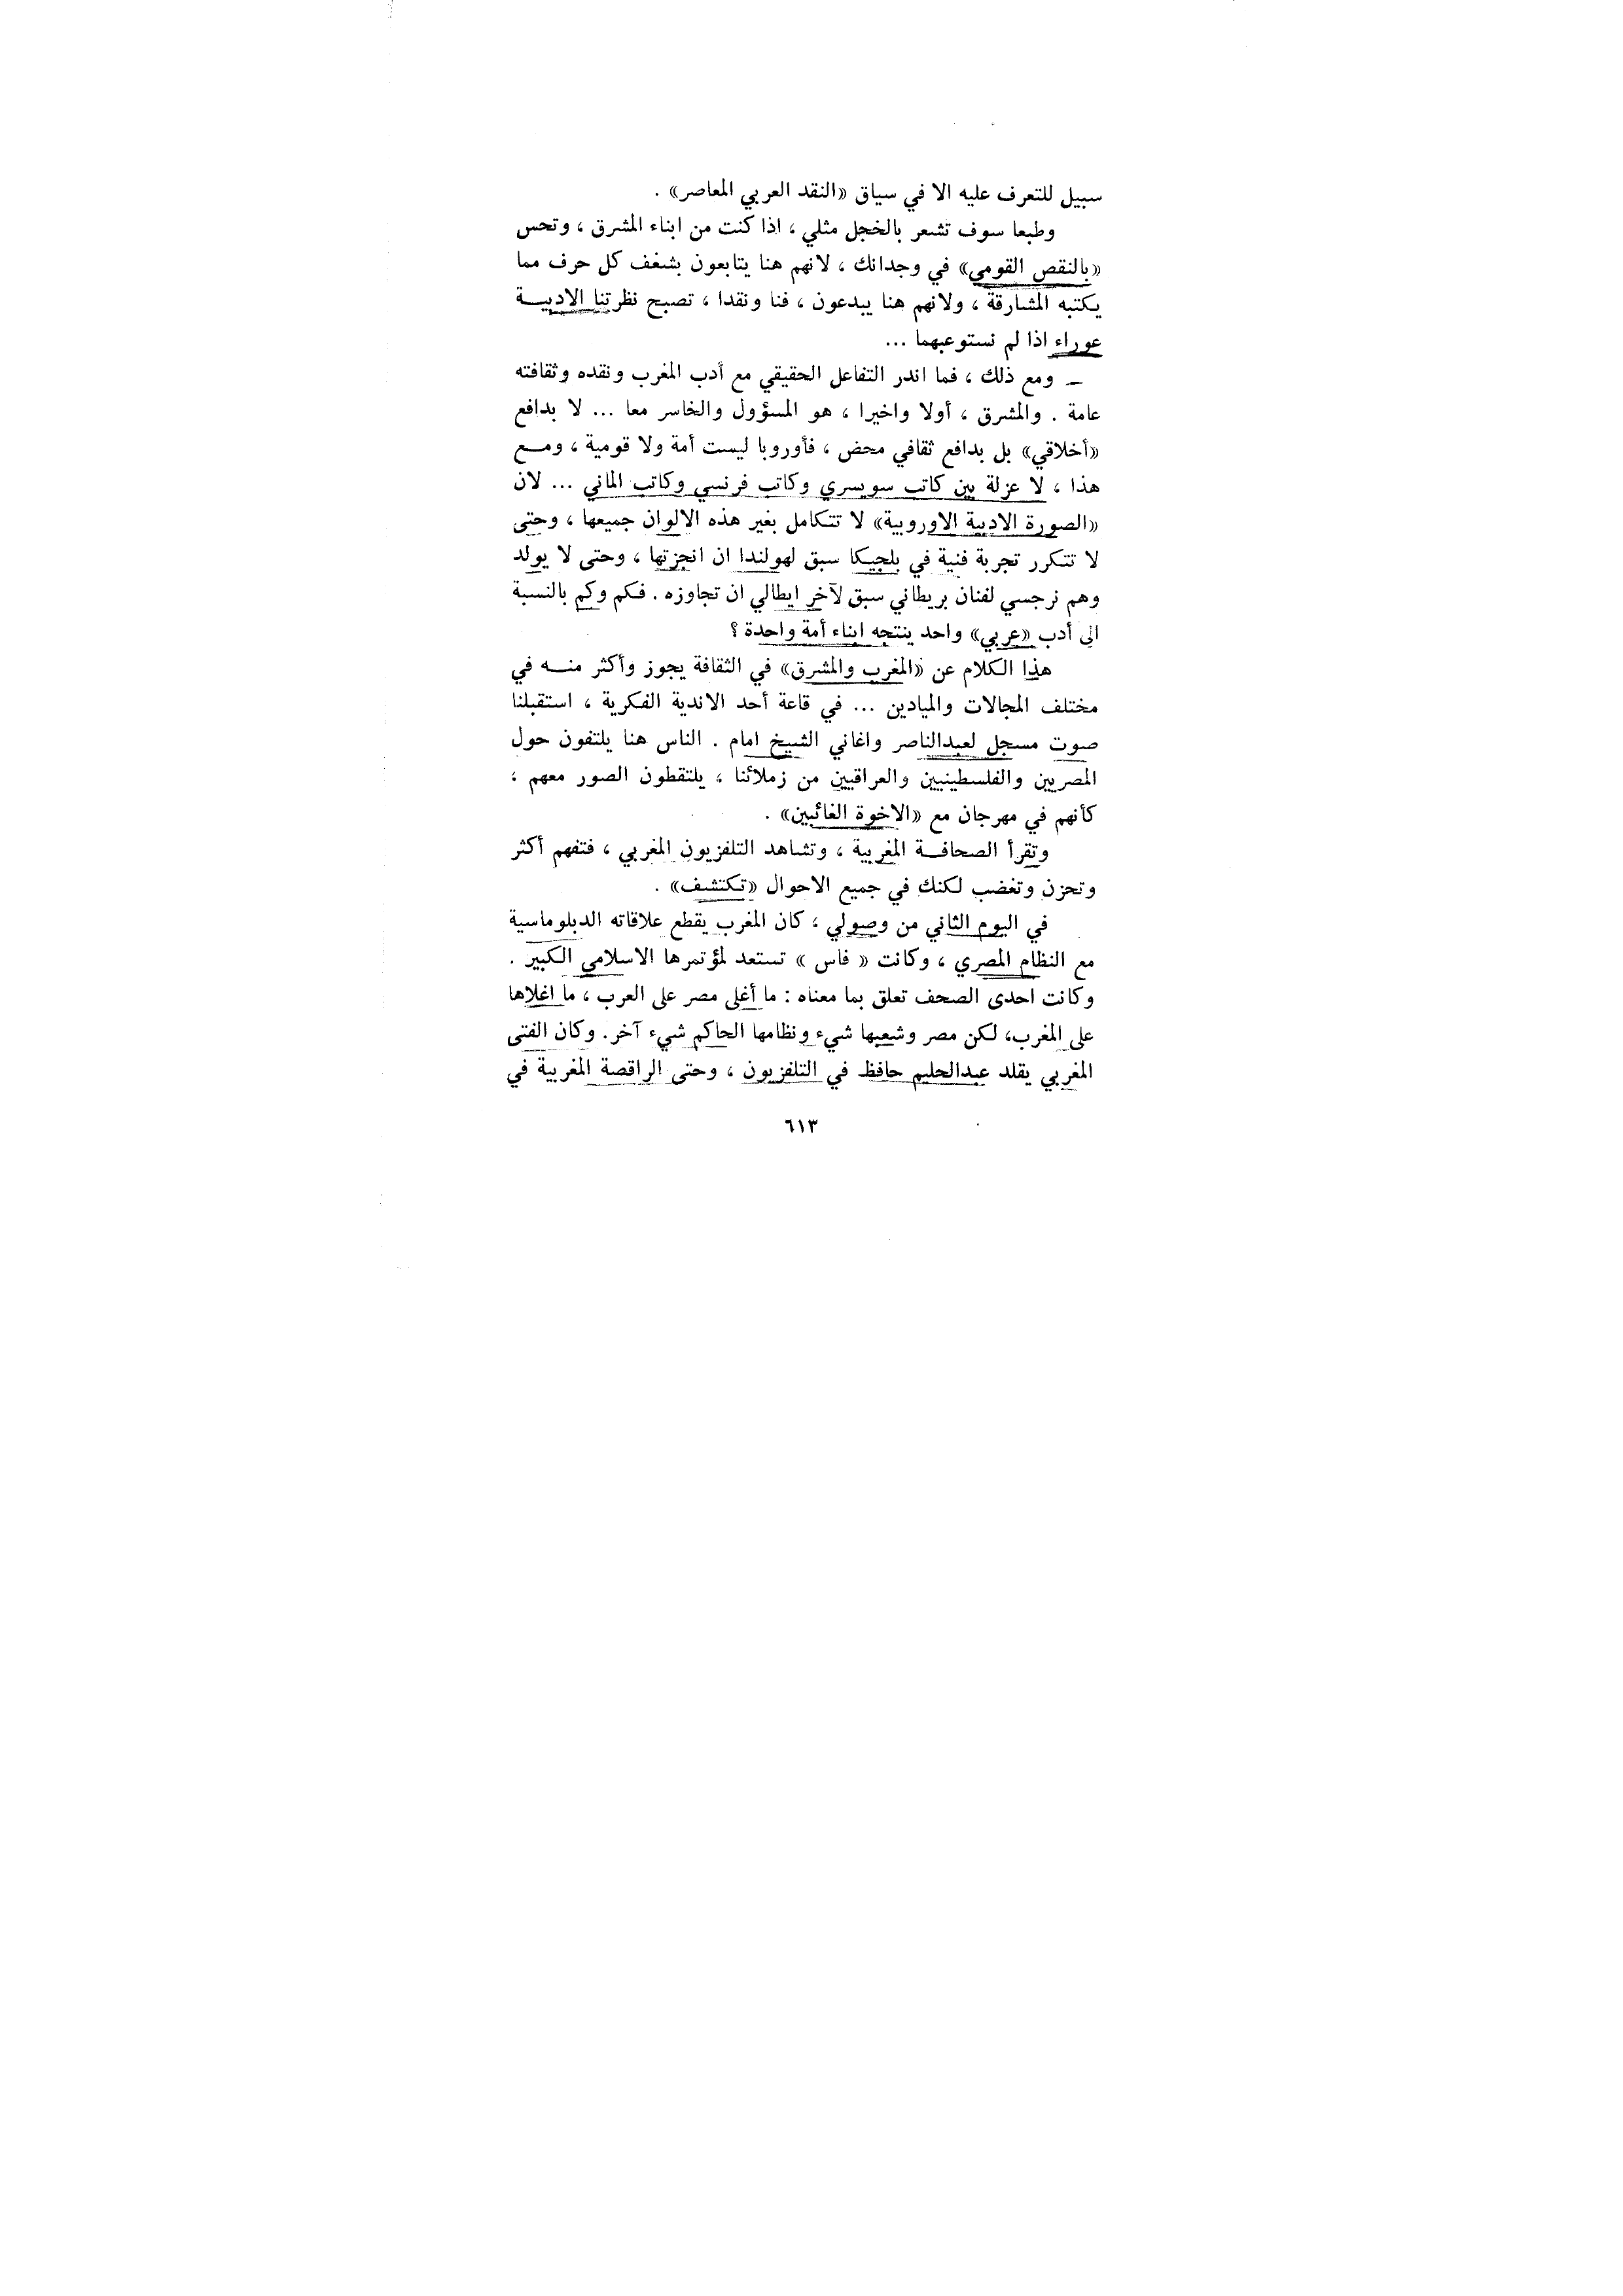 سبيل للتعرف عليه الا في سياق «النقد العربي المعاصر» .
وطبعا سوف تشعر بالخجل مثلي ، اذا كنت من ابناء المشرق ، وتحس
«بالنقص القومي» في وجدانك ، لانهم هنا يتابعون بشغف كل حرف مما
يكتبه المشارقة ، ولانهم هنا يبدعون ، فنا ونقدا ، تصبح نظرتنا الادبيـــة
عوراء اذا لم نستوعبهما ...
ـ ومع ذلك ، فما اندر التفاعل الحقيقي مع أدب المغرب ونقده وثقافته
عامة . والمشرق ، أولا واخيرا ، هو المسؤول والخاسر معا ... لا بدافع
«أخلاقي» بل بدافع ثقافي محض ، فأوروبا ليست أمة ولا قومية ، ومــع
هذا ، لا عزلة بين كاتب سويسري وكاتب فرنسي وكاتب الماني ... لان
«الصورة الادبية الاوروبية» لا تتكامل بغير هذه الالوان جميعها ، وحتى
لا تتكرر تجربة فنية في بلجيكا سبق لهولندا ان انجزتها ، وحتى لا يولد
وهم نرجسي لفنان بريطاني سبق لآخر ايطالي ان تجاوزه . فكم وكم بالنسبة
الى أدب «عربي» واحد ينتجه ابناء أمة واحدة ؟
هذا الكلام عن «المغرب والمشرق» في الثقافة يجوز وأكثر منــه في
مختلف المجالات والميادين ... في قاعة أحد الاندية الفكرية ، استقبلنا
صوت مسجل لعبدالناصر واغاني الشيخ امام . الناس هنا يلتفون حول
المصريين والفلسطينيين والعراقيين من زملائنا ، يلتقطون الصور معهم ،
كأنهم في مهرجان مع «الاخوة الغائبين» .
وتقرأ الصحافــة المغربية ، وتشاهد التلفزيون المغربي ، فتفهم أكثر
وتحزن وتغضب لكنك في جميع الاحوال «تكتشف» .
في اليوم الثاني من وصولي ، كان المغرب يقطع علاقاته الدبلوماسية
مع النظام المصري ، وكانت « فاس » تستعد لمؤتمرها الاسلامي الكبير .
وكانت احدى الصحف تعلق بما معناه : ما أغلى مصر على العرب ، ما اغلاها
على المغرب، لكن مصر وشعبها شيء ونظامها الحاكم شيء آخر. وكان الفتى
المغربي يقلد عبدالحليم حافظ في التلفزيون ، وحتى الراقصة المغربية في
٦١٣